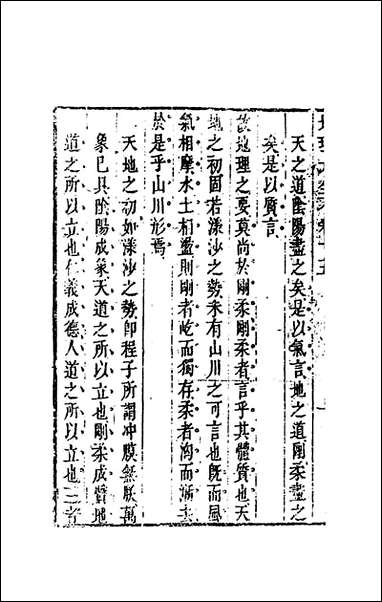 天之道陰陽盡之矣是以氣言地之道剛柔盡之
矣是以質言
故地理之要莫尚於剛柔剛柔者言乎其體質也天
地之初固若漾沙之勢未有山川之可言也既而風
氣相摩水土相盪則剛者屹而獨存柔者淘而漸去
於是乎山川形焉
天地之初如漾沙之勢即程子所謂冲膜無朕萬
象已具陰陽成象天道之所以立也剛柔成質地
道之所以立也仁義成德人道之所以立也三者